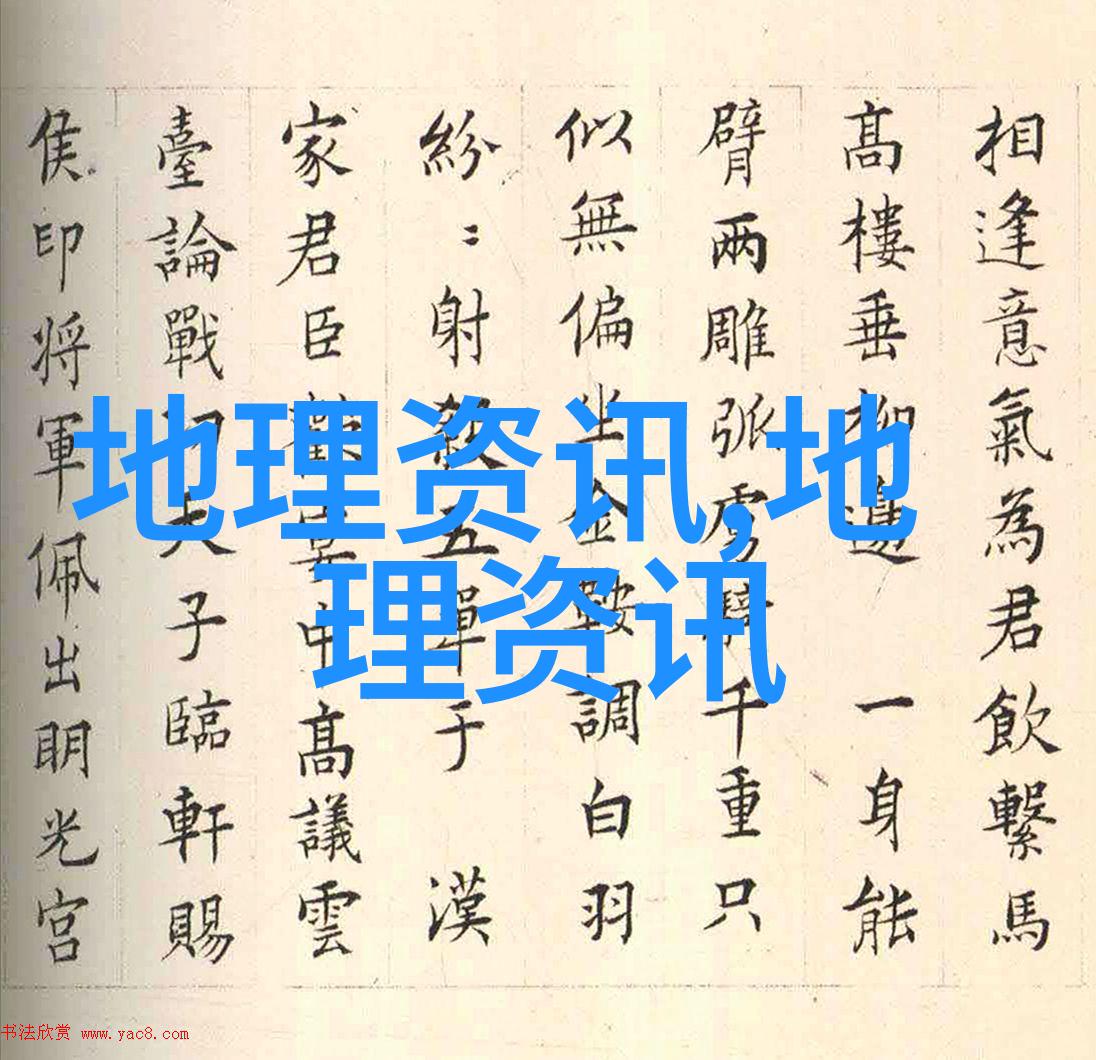 相逢意氣為君飲繫馬
高樓垂柳邊 一身能
臂兩雕弧虜騎千重只
似無偏坐金鞍調白羽
紛〻射殺五單于 漢
家君臣歡宴中高議雲
臺論戰功天子臨軒賜
侯印将軍佩出明光宮
地理资讯,地
理资讯
书法欣赏 www.yac8.com